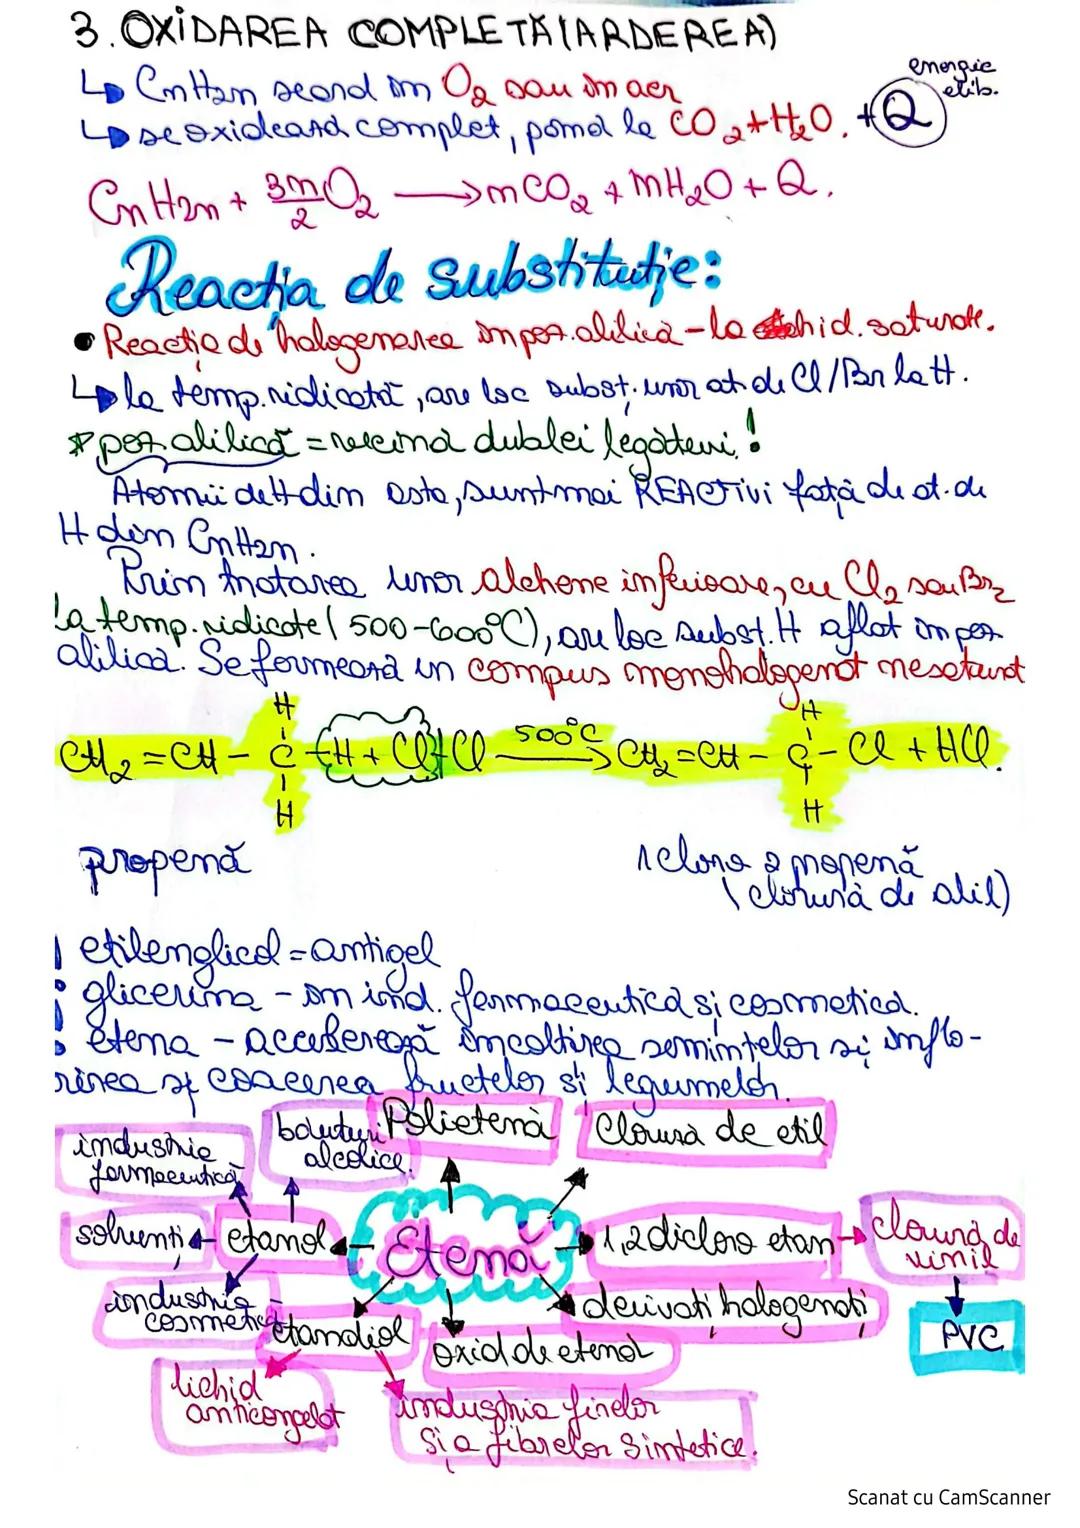 3. OXIDAREA COMPLETĂ (ARDEREA)
↳ CnH2n se ard în O2 sau în aer
energie
elib.
↳ se oxidează complet, până la CO2+H2O. + Q
CnH2n + 3n/2 O2 ⟶ nCO2 + nH2O + Q.
Reacția de substituție:
• Reacția de halogenarea în poz. alilică - la hid. saturate.
↳ la temp. ridicată, are loc subst. unor at. de Cl/Br la H.
* poz. alilică = vecină dublei legături!
Atomii de H din asta, sunt mai REACTIVI față de at. de
H din CnH2n.
Prin tratarea unor alchene inferioare, cu Cl2 sau Br2
la temp. ridicate (500-600°C), are loc subst. H aflat în poz.
alilică. Se formează un compus monohalogenat nesaturat
H H
CH2=CH-C-H + Cl-Cl ⟶ 500°C CH2=CH-C-Cl + HCl.
H H
propenă 1 cloro 2 propenă
(clorură de alil)
! etilenglicol = antigel
! glicerina - în ind. farmaceutică și cosmetică.
! etena - accelerează încolțirea semințelor și inflo-
rirea și coacerea fructelor și legumelor.
industrie
farmaceutică
băuturi
alcolice.
Polietenă
Clorură de etil
solvenți
etanol
Etenă
1,2 dicloro etan
clorură de
vinil
industrie
cosmetică
etandiol
oxid de etenă
derivați halogenați
PVC
lichid
anticongelat
industria firelor
și a fibrelor sintetice.
Scanat cu CamScanner